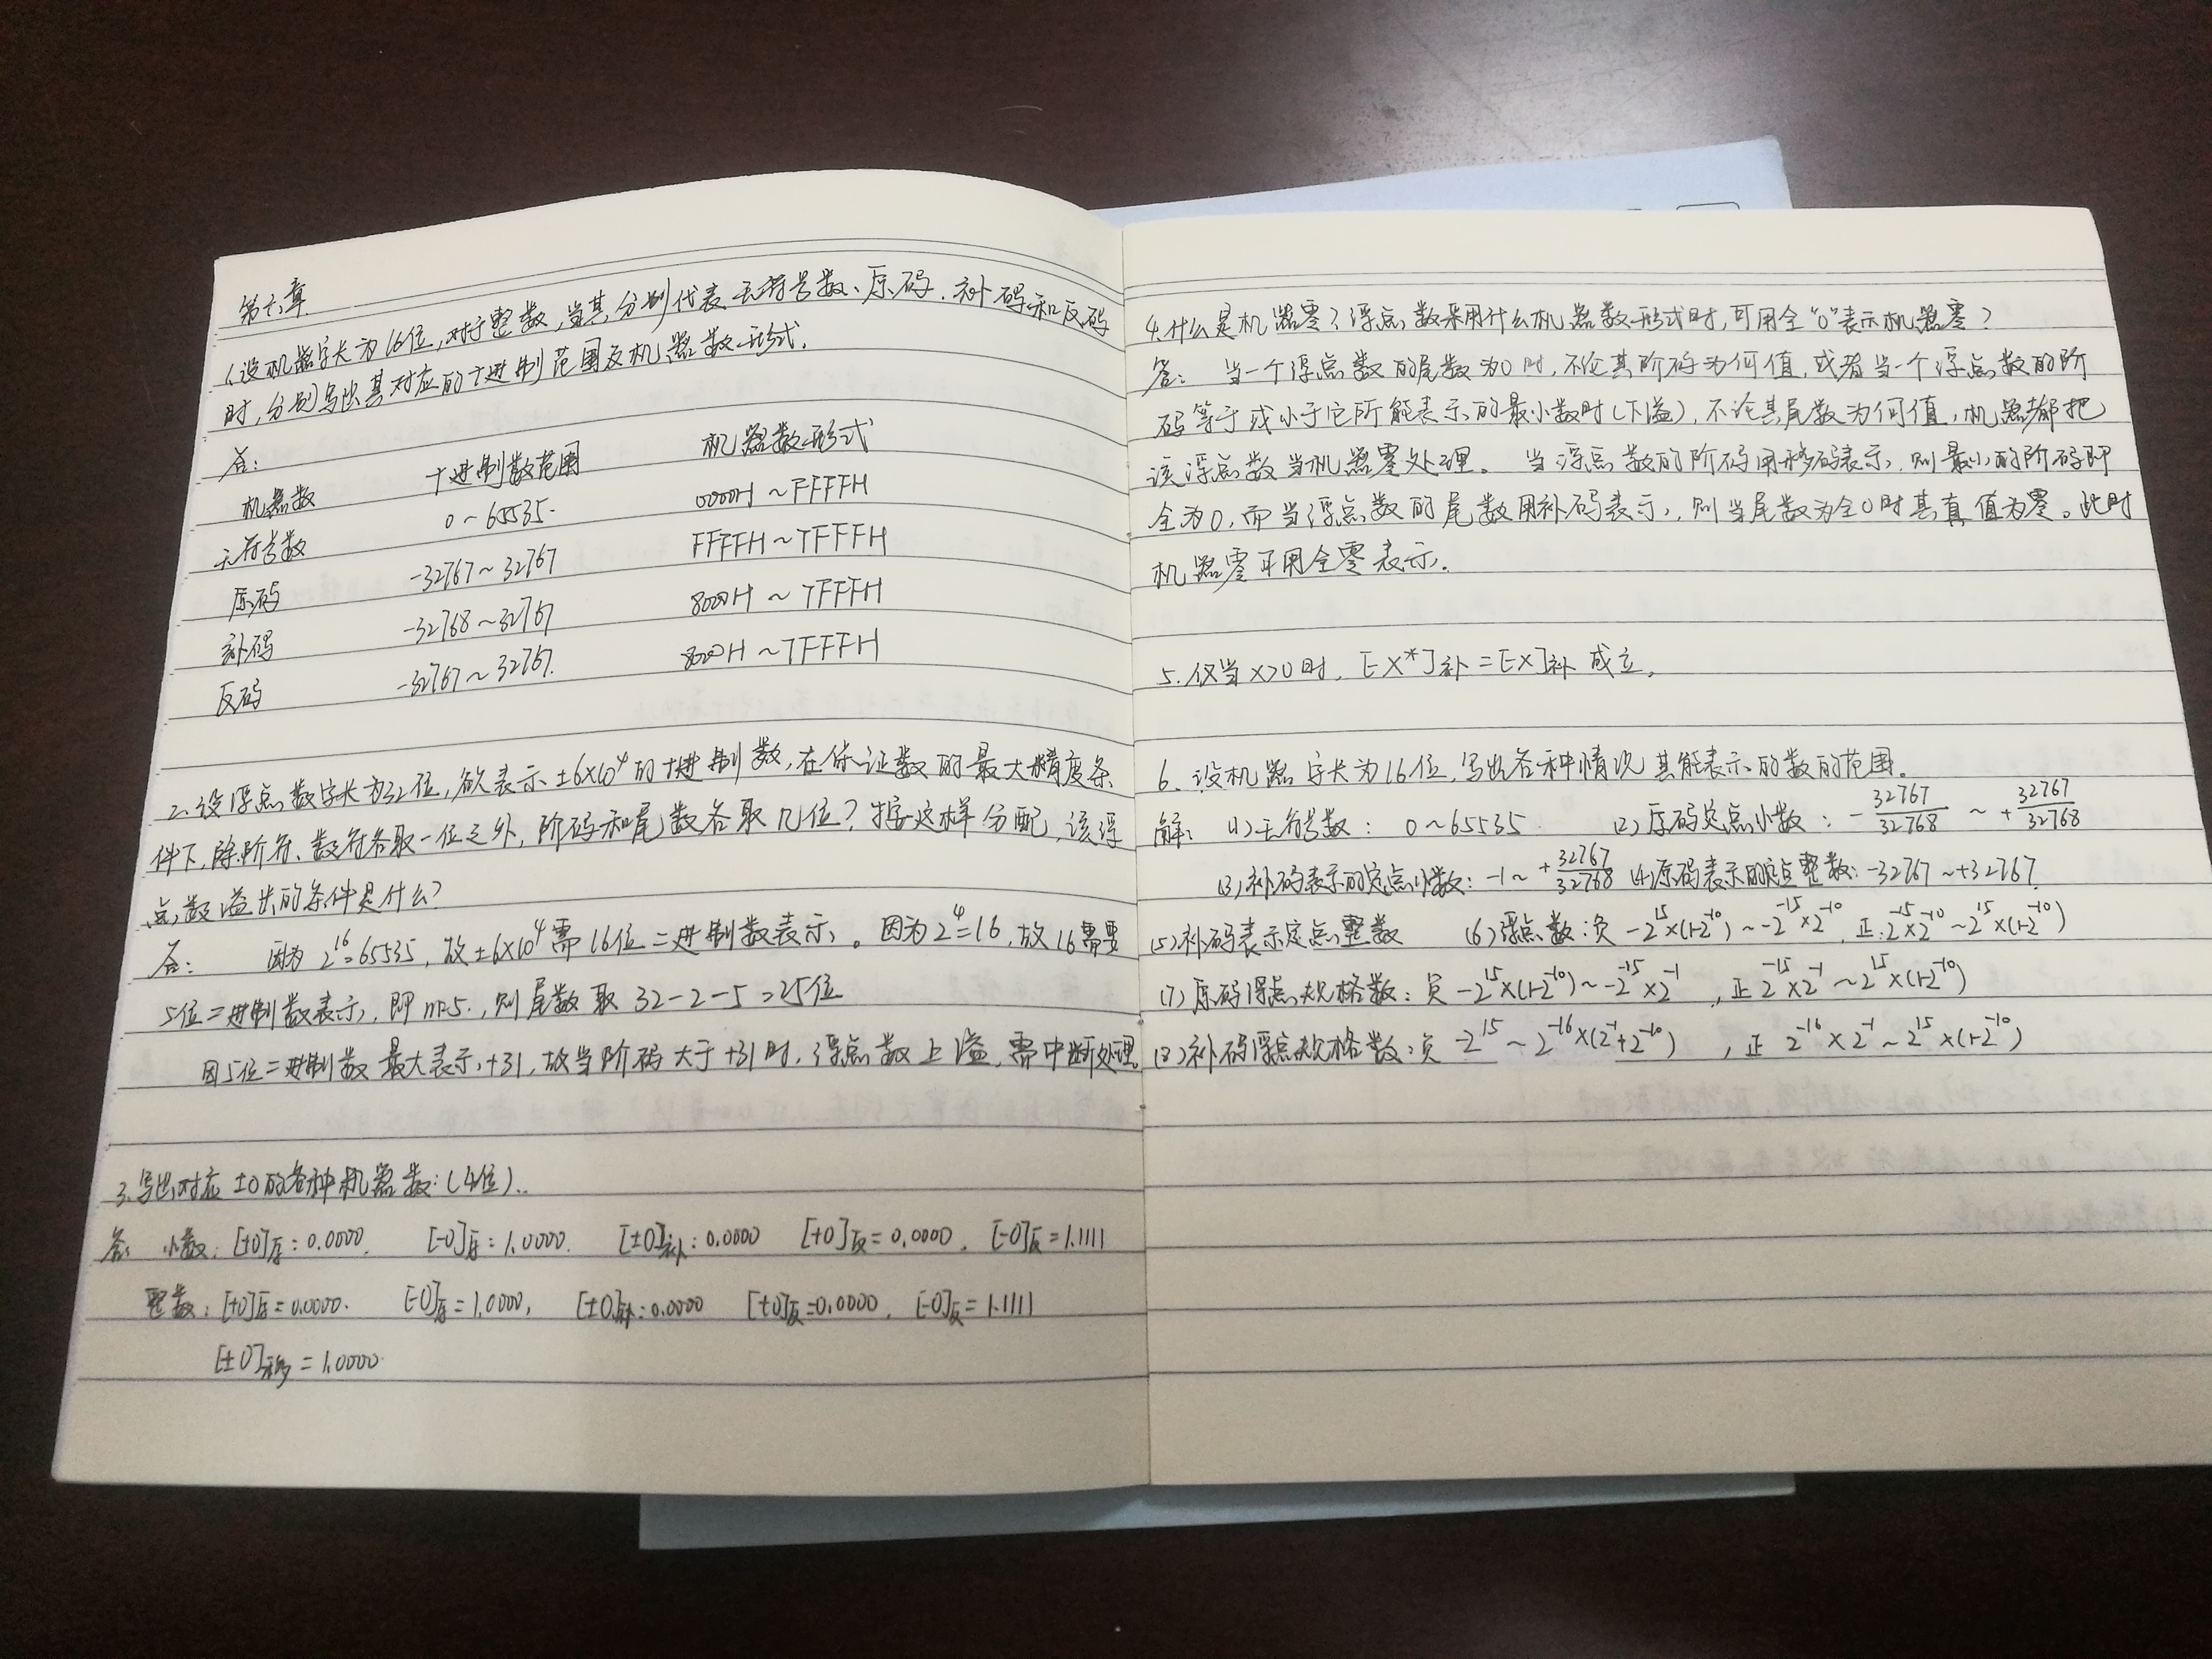 第六章
1.设机器字长为16位,对于整数,当其分别代表无符号数、原码、补码和反码
时,分别写出其对应的十进制范围及机器数形式.
答:
机器数 十进制数范围 机器数形式
无符号数 0~65535. 0000H~FFFFH
原码 -32767~32767 FFFFH~7FFFH
补码 -32768~32767 8000H~7FFFH
反码 -32767~32767. 8000H~7FFFH
2.设浮点数字长为32位,欲表示±6×10⁴的十进制数,在保证数的最大精度条
件下,除阶符、数符各取一位之外,阶码和尾数各取几位?按这样分配,该浮
点数溢出的条件是什么?
答: 因为2¹⁶=65535,故±6×10⁴需16位二进制数表示。因为2⁴=16,故16需要
5位二进制数表示,即m=5.,则尾数取32-2-5=25位
因5位二进制数最大表示+31,故当阶码大于+31时,浮点数上溢,需中断处理.
3.写出对应±0的各种机器数:(4位)..
答: 小数:[+0]原:0.0000. [-0]原:1.0000. [±0]补:0.0000 [+0]反=0.0000. [-0]反=1.1111
整数:[+0]原=0.0000. [-0]原=1.0000, [±0]补:0.0000 [+0]反=0.0000. [-0]反=1.1111
[±0]移=1.0000
4.什么是机器零?浮点数采用什么机器数形式时,可用全"0"表示机器零?
答: 当一个浮点数的尾数为0时,不论其阶码为何值,或者当一个浮点数的阶
码等于或小于它所能表示的最小数时(下溢),不论其尾数为何值,机器都把
该浮点数当机器零处理。当浮点数的阶码用移码表示,则最小的阶码即
全为0,而当浮点数的尾数用补码表示,则当尾数为全0时其真值为零。此时
机器零可用全零表示.
5.仅当x>0时,[X*]补=[X]补成立.
6.设机器字长为16位,写出各种情况其能表示的数的范围.
解: (1)无符号数: 0~65535. (2)原码定点小数:-32767/32768 ~ +32767/32768
(3)补码表示的定点小数:-1~+32767/32768 (4)原码表示的定点整数:-32767~+32767.
(5)补码表示定点整数 (6)浮点数:负 -2¹⁵×(1-2⁻¹⁰)~-2⁻¹⁵×2⁻¹⁰,正:2⁻¹⁵×2⁻¹⁰~2¹⁵×(1-2⁻¹⁰)
(7)原码浮点规格数:负 -2¹⁵×(1-2⁻¹⁰)~-2⁻¹⁵×2⁻¹ ,正 2⁻¹⁵×2⁻¹~2¹⁵×(1-2⁻¹⁰)
(8)补码浮点规格数:负 -2¹⁵~2⁻¹⁶×(2⁻¹+2⁻¹⁰) ,正 2⁻¹⁶×2⁻¹~2¹⁵×(1-2⁻¹⁰)